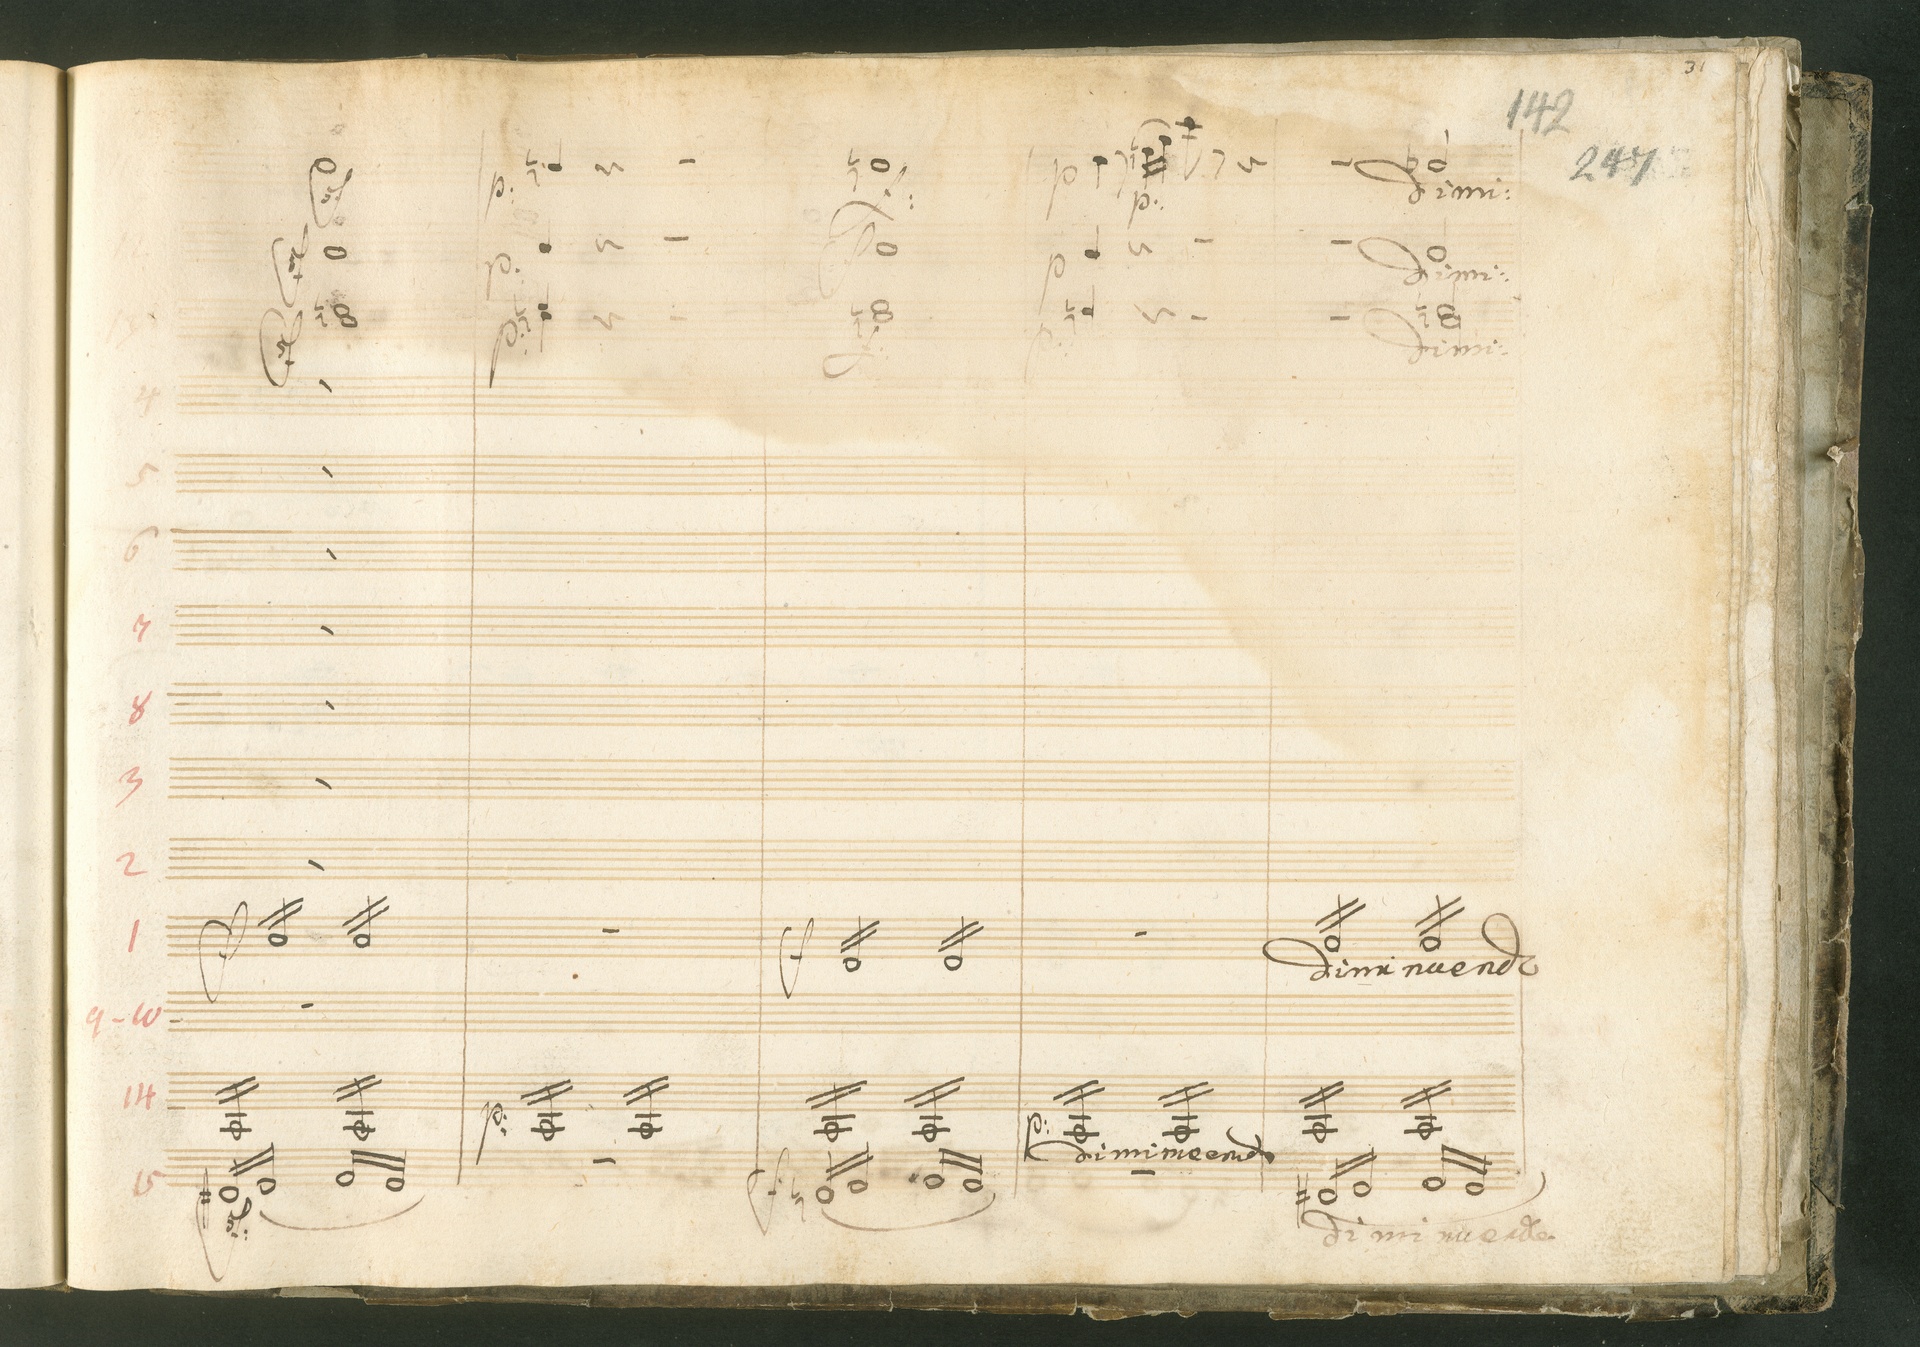 31
142
247
p: p p: dimi:
p: p dimi:
p: dimi:
4
5
6
7
8
3
2
1 diminuendo
9-10
14 p: p: diminuendo
15 diminuendo